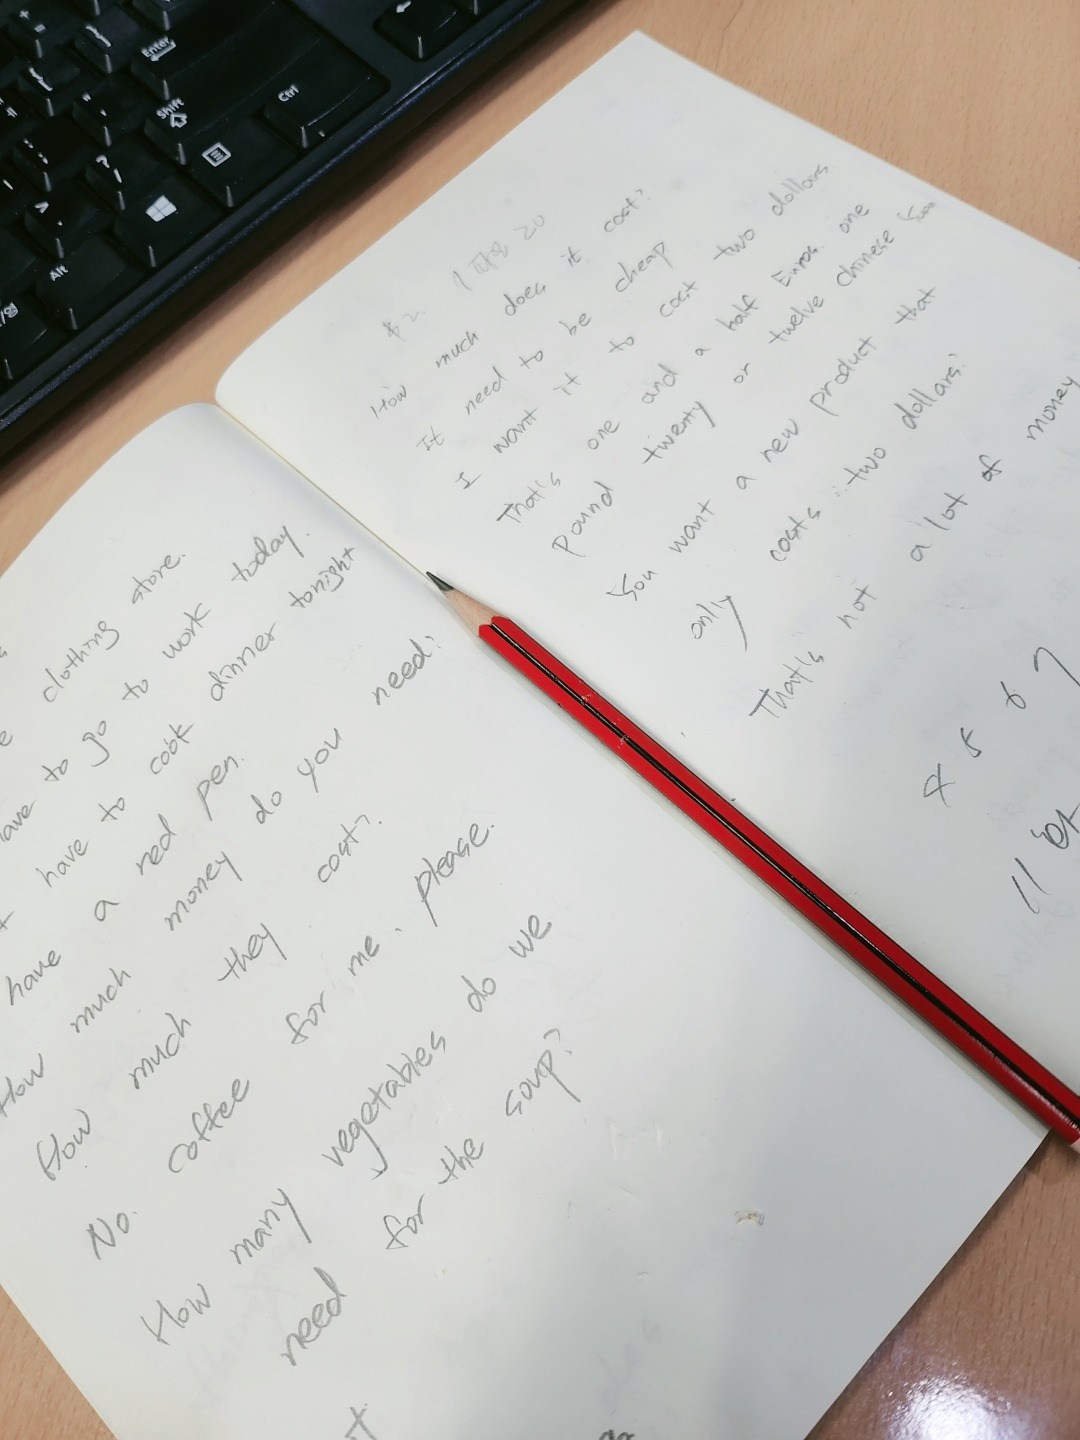 Enter
Shift
Ctrl
Alt
clothing store.
have to go to work today.
have to cook dinner tonight
have a red pen.
How much money do you need?
How much they cost?
No. coffee for me, please.
How many vegetables do we
need for the soup?
$2.
How much does it cost?
It need to be cheap
I want it to cost two dollars
That's one and a half Euros. one
pound twenty or twelve chinese Yuan
You want a new product that
only costs two dollars?
That's not a lot of money
4 5 6 7
11